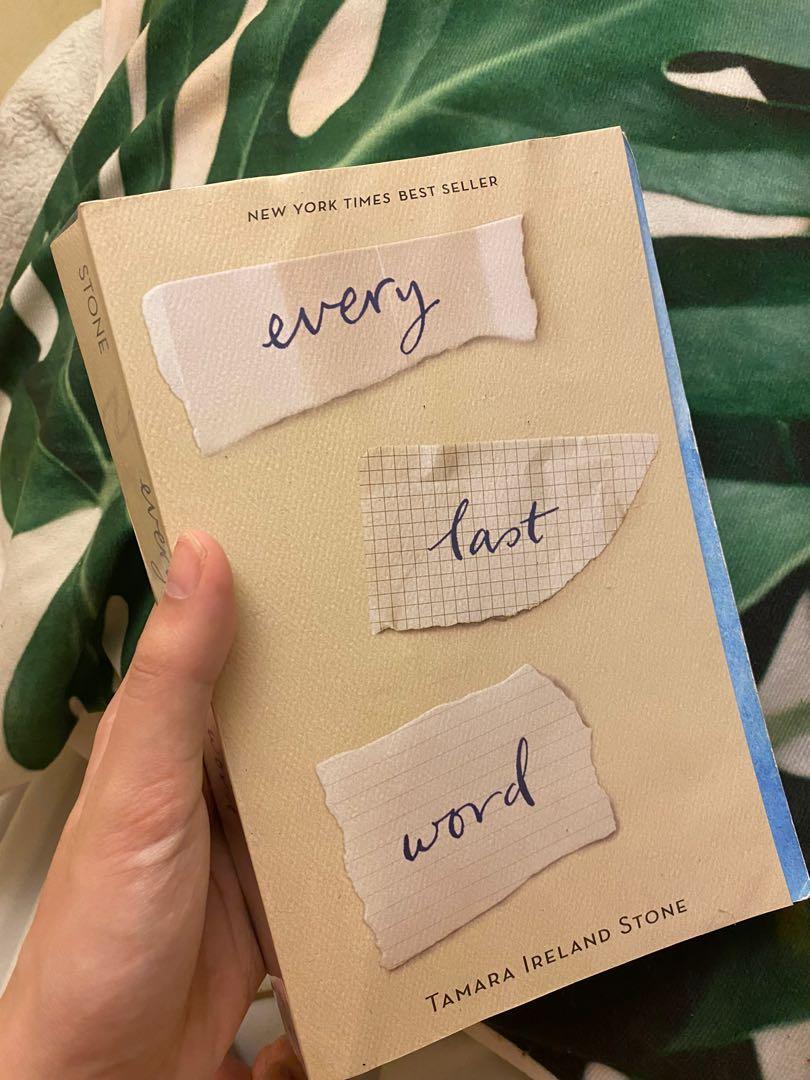 NEW YORK TIMES BEST SELLER
every
last
word
TAMARA IRELAND STONE
STONE
every